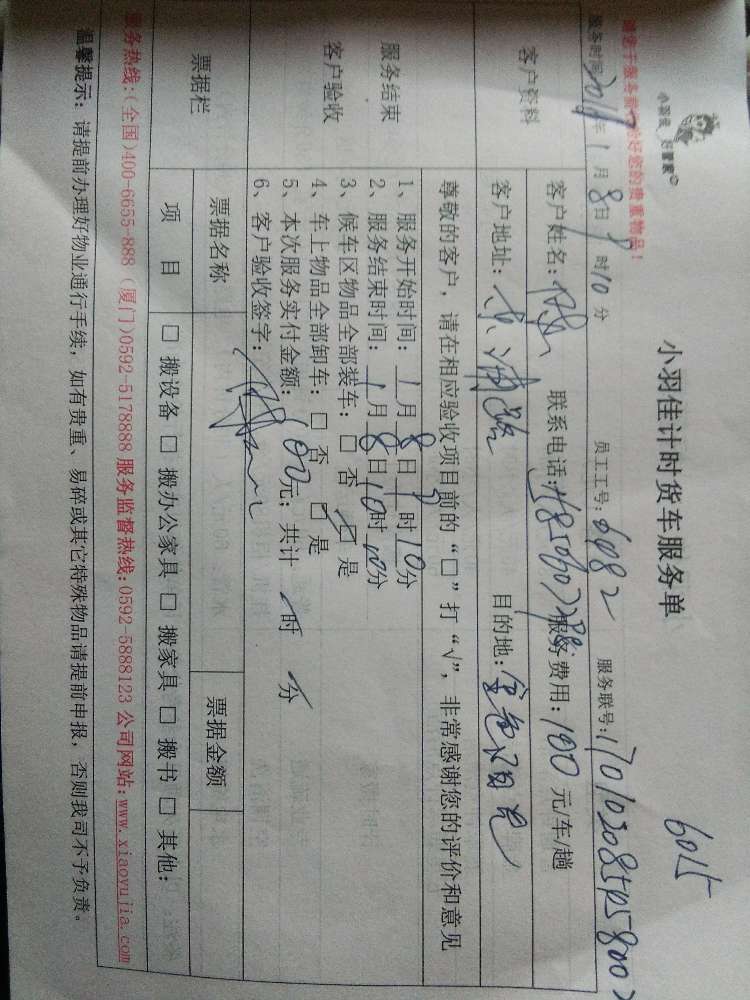 6015
小羽佳 好管家
小羽佳计时货车服务单
请您于服务前收拾好您的贵重物品!
服务时间: 年 1 月 8 日 时 10 分 员工工号: 6082 服务联号:
客户资料 客户姓名: 联系电话: 服务费用: 100 元/车/趟
客户地址: 目的地: 金色阳光
尊敬的客户,请在相应验收项目前的“□”打“√”,非常感谢您的评价和意见
服务结束
客户验收
1、服务开始时间: 1 月 8 日 时 10 分
2、服务结束时间: 1 月 8 日 10 时 10 分
3、候车区物品全部装车: □ 否 □ 是
4、车上物品全部卸车: □ 否 □ 是
5、本次服务实付金额: 100 元; 共计 时 分
6、客户验收签字:
票据栏 票据名称 票据金额
项 目 □ 搬设备 □ 搬办公家具 □ 搬家具 □ 搬书 □ 其他:
服务热线:(全国)400-6655-888 (厦门)0592-5178888 服务监督热线:0592-5888123 公司网站:www.xiaoyujia.com
温馨提示: 请提前办理好物业通行手续, 如有贵重、易碎或其它特殊物品请提前申报, 否则我司不予负责。